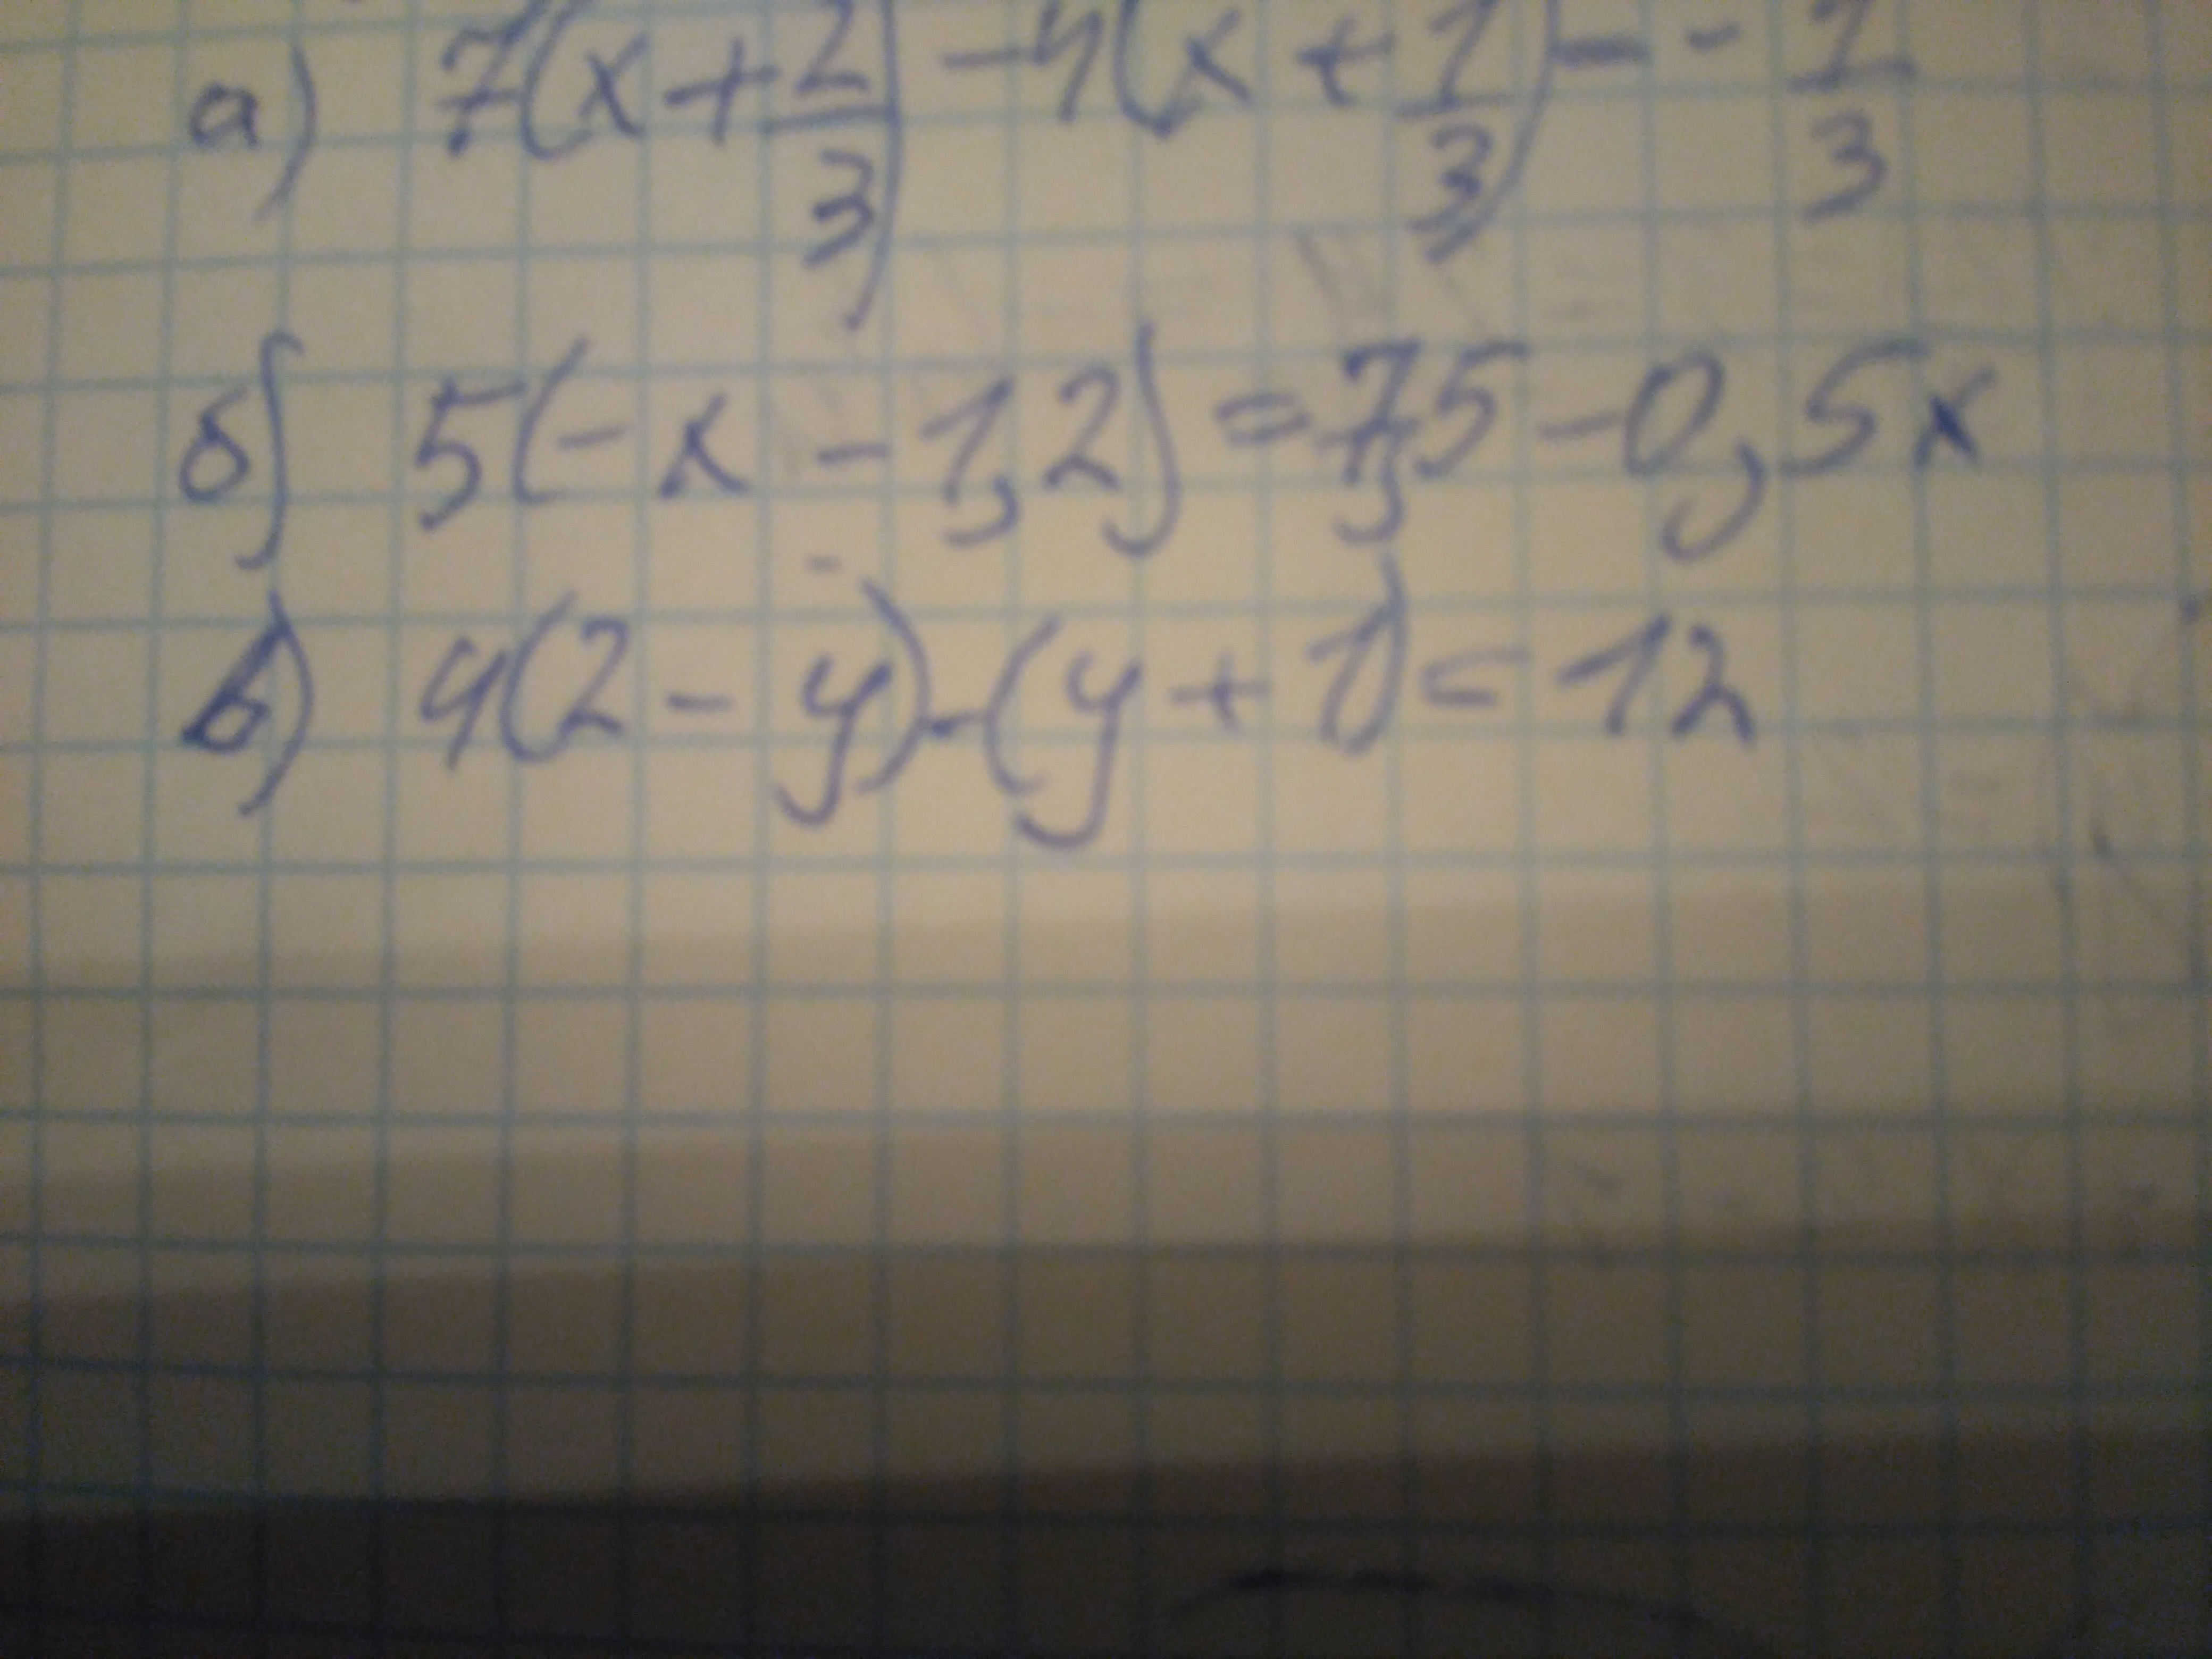 а) 7(x+2/3)-4(x+1/3)--1/3
б) 5(-x-1,2)=7,5-0,5x
в) 4(2-y)-(y+1)=12